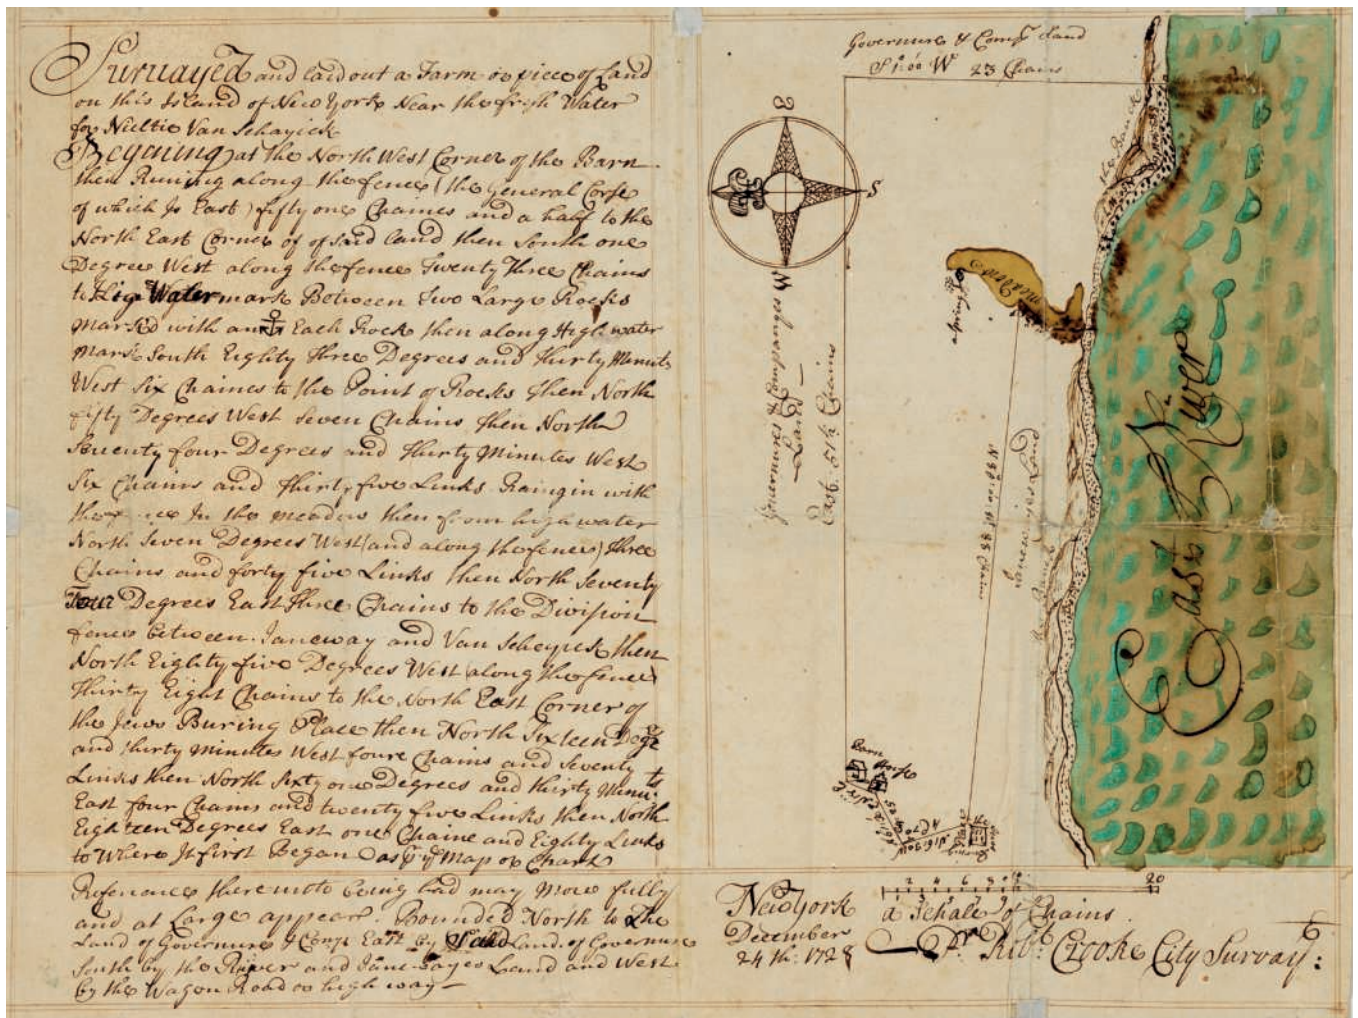 Survayed and laid out a Farm or piece of Land
on this Island of New York Near the fresh Water
for Nieltie Van Schayick
Begining at the North West Corner of the Barn
then Runing along the fence (the General Corse
of which Is East) fifty one Chaines and a half to the
North East Corner of of said land then South one
Degree West along the fence Twenty Three Chains
to Hige Water mark Between Two Large Rocks
marked with an ⚓ Each Rock then along High water
mark South Eighty Three Degrees and thirty Minuts
West Six Chaines to the Point of Rocks then North
fifty Degrees West Seven Chains then North
Seventy four Degrees and Thirty Minutes West
Six Chains and thirty five Links Raingin with
the fence In the meadow then from high water
North Seven Degrees West (and along the fence) three
Chains and forty five Links then North Seventy
Four Degrees East three Chains to the Division
fence between Janeway and Van Scheyck then
North Eighty five Degrees West (along the fence)
Thirty Eight Chains to the North East Corner of
the Jews Buring Place then North Sixteen Degr
and thirty minutes West foure Chains and Seventy
Links then North Sixty one Degrees and thirty Minuts
East four Chains and twenty five Links then North
Eighteen Degrees East one Chaine and Eighty Links
to Where It first Began as pr ye Map or Chart
Reference thereunto being had may More fully
and at Large appear. Bounded North to The
Land of Governure & Comp East by Said Land of Governure
South by the River and Janewayes Land and West
by the Wagon Road or high way
Governure & Comp Land
S 1:00 W 23 Chains
S
W
Governure & Companyes
Land
East 51½ Chains
Spring
Meadow
38 Chains
Janewayes Land
East River
Barn
House
2 4 6 8 20
a Schale of Chains
New York
December
24th: 1728
Pr. Robt: Crooke City Survay: